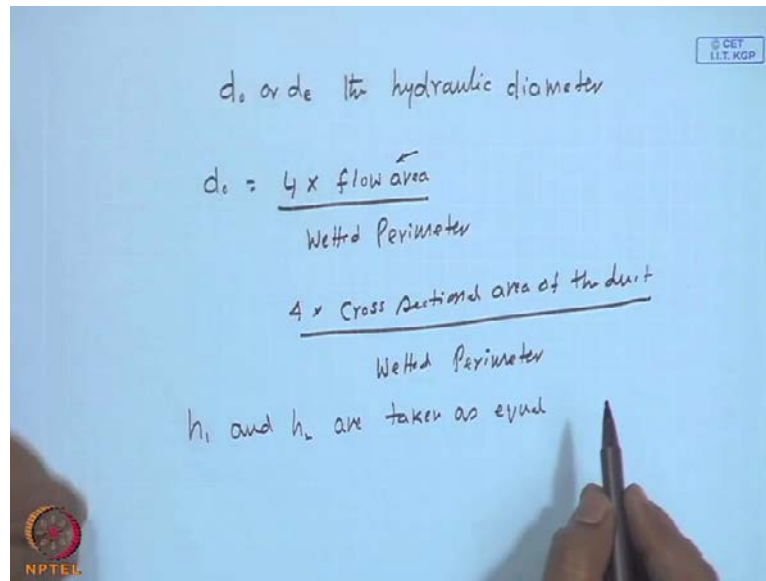 © CET
I.I.T. KGP
d₀ or de the hydraulic diameter
de = 4 x flow area
Wetted Perimeter
4 x Cross sectional area of the duct
Wetted Perimeter
h₁ and h₂ are taken as equal
NPTEL